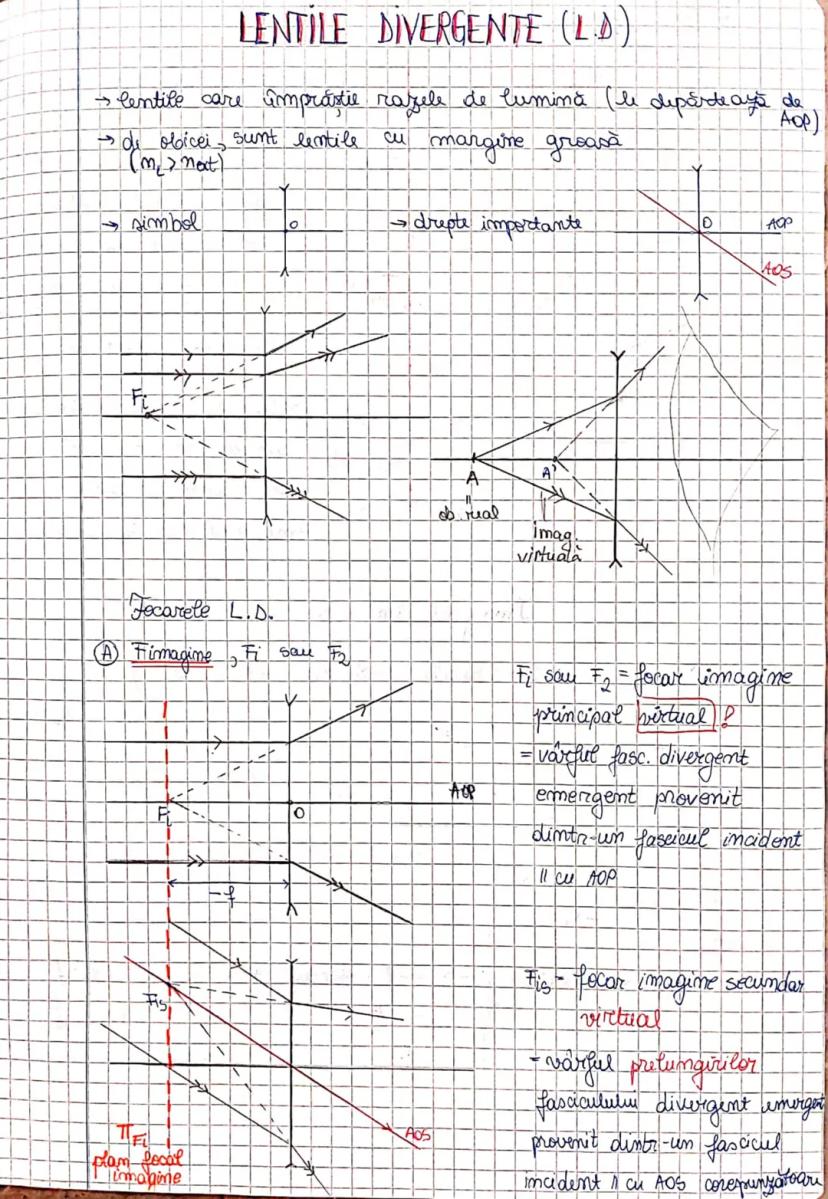 LENTILE DIVERGENTE (L.D)
→ lentile care împrăștie razele de lumină (le depărtează de
AOP)
→ de obicei, sunt lentile cu margine groasă
(n_L > n_ext)
→ simbol
O
→ drepte importante
O
AOP
AOS
Fi
A
A'
"
ob. real
imag.
virtuală
Focarele L.D.
A Fimagine, Fi sau F2
Fi sau F2 = focar imagine
principal virtual !
= vârful fasc. divergent
emergent provenit
dintr-un fascicul incident
|| cu AOP
AOP
Fi
O
-f
Fis
AOS
πFi
plan focal
imagine
Fis - focar imagine secundar
virtual
- vârful prelungirilor
fasciculului divergent emergent
provenit dintr-un fascicul
incident || cu AOS corespunzătoare